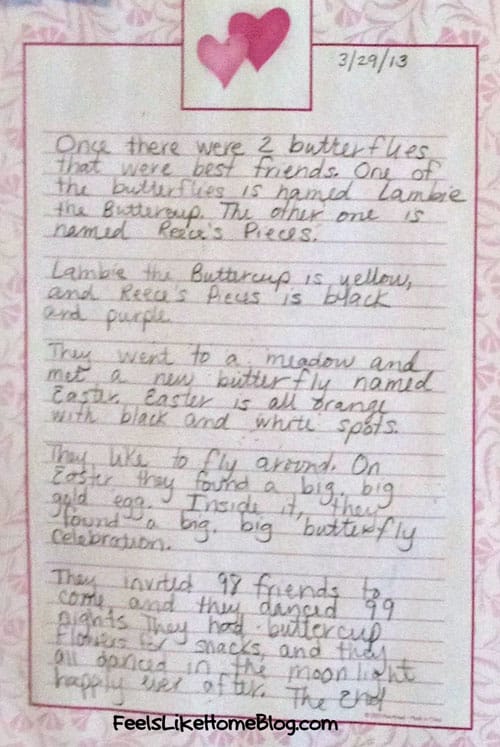 3/29/13
Once there were 2 butterflies
that were best friends. One of
the butterflies is named Lambie
the Buttercup. The other one is
named Reece's Pieces.
Lambie the Buttercup is yellow,
and Reece's Pieces is black
and purple.
They went to a meadow and
met a new butterfly named
Easter. Easter is all orange
with black and white spots.
They like to fly around. On
Easter they found a big, big
gold egg. Inside it, they
found a big, big butterfly
celebration.
They invited 98 friends to
come, and they danced 99
nights. They had buttercup
flowers for snacks, and they
all danced in the moonlight
happily ever after. The End
FeelsLikeHomeBlog.com